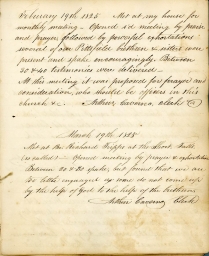 February 19th 1885 Met at my house for
monthly meeting - Opened s'd meeting by praise
and prayer followed by powerful exhortations
several of our Pittsfield brethren & sisters were
present and spake encouragingly. Between
30 & 40 testimonies were delivered.
At this meeting it was proposed for prayer and
consideration, who should be officers in this
church &c. Arthur Caverno, clerk
March 19th 1885
Met at the
so called - Opened meeting by prayer & exhortation
Between 20 & 30 spake, but found that we are
too little engaged as some do not come up
by the help of God to the help of the brethren
Arthur Caverno Clerk